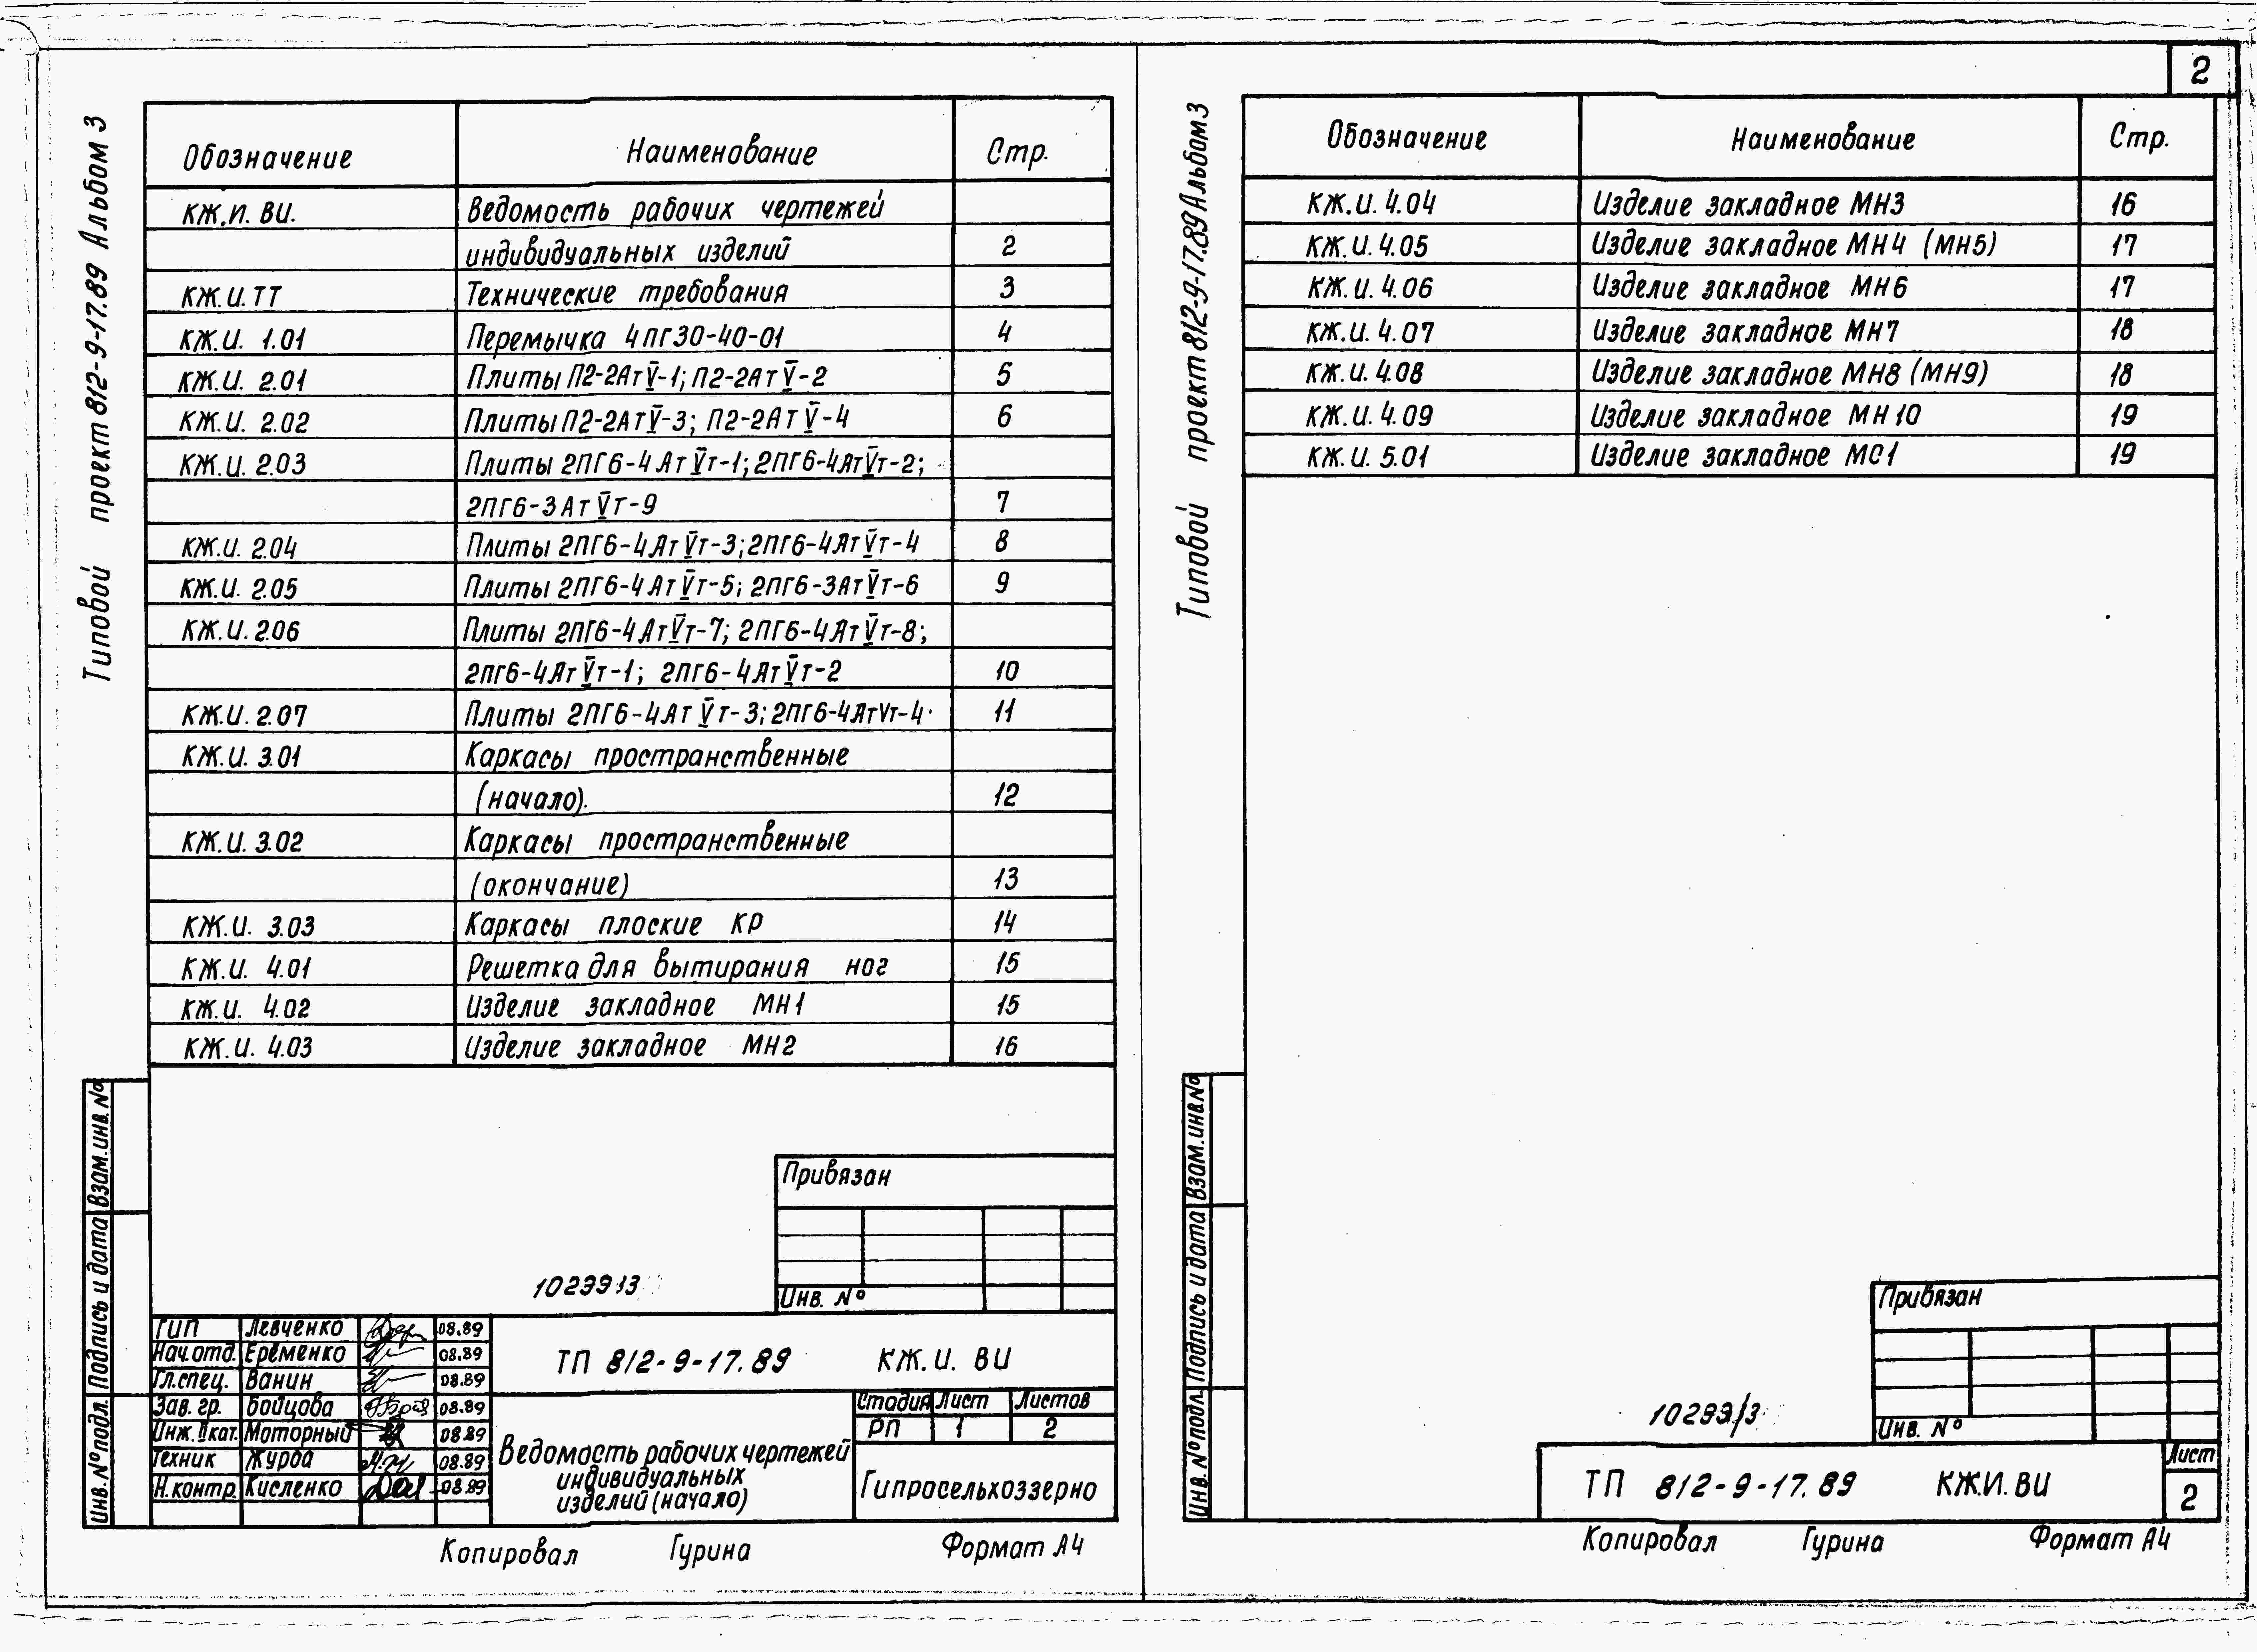 2
Типовой проект 812-9-17.89 Альбом 3
Обозначение Наименование Стр.
КЖ.И. ВИ. Ведомость рабочих чертежей
индивидуальных изделий 2
КЖ.И. ТТ Технические требования 3
КЖ.И. 1.01 Перемычка 4ПГ30-40-01 4
КЖ.И. 2.01 Плиты П2-2АтV-1; П2-2АтV-2 5
КЖ.И. 2.02 Плиты П2-2АтV-3; П2-2АтV-4 6
КЖ.И. 2.03 Плиты 2ПГ6-4АтVт-1; 2ПГ6-4АтVт-2;
2ПГ6-3АтVт-9 7
КЖ.И. 2.04 Плиты 2ПГ6-4АтVт-3; 2ПГ6-4АтVт-4 8
КЖ.И. 2.05 Плиты 2ПГ6-4АтVт-5; 2ПГ6-3АтVт-6 9
КЖ.И. 2.06 Плиты 2ПГ6-4АтVт-7; 2ПГ6-4АтVт-8;
2ПГ6-4АтVт-1; 2ПГ6-4АтVт-2 10
КЖ.И. 2.07 Плиты 2ПГ6-4АтVт-3; 2ПГ6-4АтVт-4 11
КЖ.И. 3.01 Каркасы пространственные
(начало). 12
КЖ.И. 3.02 Каркасы пространственные
(окончание) 13
КЖ.И. 3.03 Каркасы плоские КР 14
КЖ.И. 4.01 Решетка для вытирания ног 15
КЖ.И. 4.02 Изделие закладное МН1 15
КЖ.И. 4.03 Изделие закладное МН2 16
Взам.инв.№
Подпись и дата
Инв.№подл.
Привязан
Инв. №
ГИП Левченко 08.89
Нач.отд. Еременко 08.89
Гл.спец. Ванин 08.89
Зав. гр. Бойцова 08.89
Инж. II кат. Моторный 08.89
Техник Журба 08.89
Н.контр. Кисленко 08.89
ТП 812-9-17.89 КЖ.И. ВИ
Ведомость рабочих чертежей
индивидуальных
изделий (начало)
Стадия Лист Листов
РП 1 2
Гипросельхоззерно
Копировал Гурина Формат А4
Типовой проект 812-9-17.89 Альбом 3
Обозначение Наименование Стр.
КЖ.И. 4.04 Изделие закладное МН3 16
КЖ.И. 4.05 Изделие закладное МН4 (МН5) 17
КЖ.И. 4.06 Изделие закладное МН6 17
КЖ.И. 4.07 Изделие закладное МН7 18
КЖ.И. 4.08 Изделие закладное МН8 (МН9) 18
КЖ.И. 4.09 Изделие закладное МН10 19
КЖ.И. 5.01 Изделие закладное МС1 19
Взам.инв.№
Подпись и дата
Инв.№подл.
Привязан
Инв. №
ТП 812-9-17.89 КЖ.И. ВИ
Лист
2
Копировал Гурина Формат А4